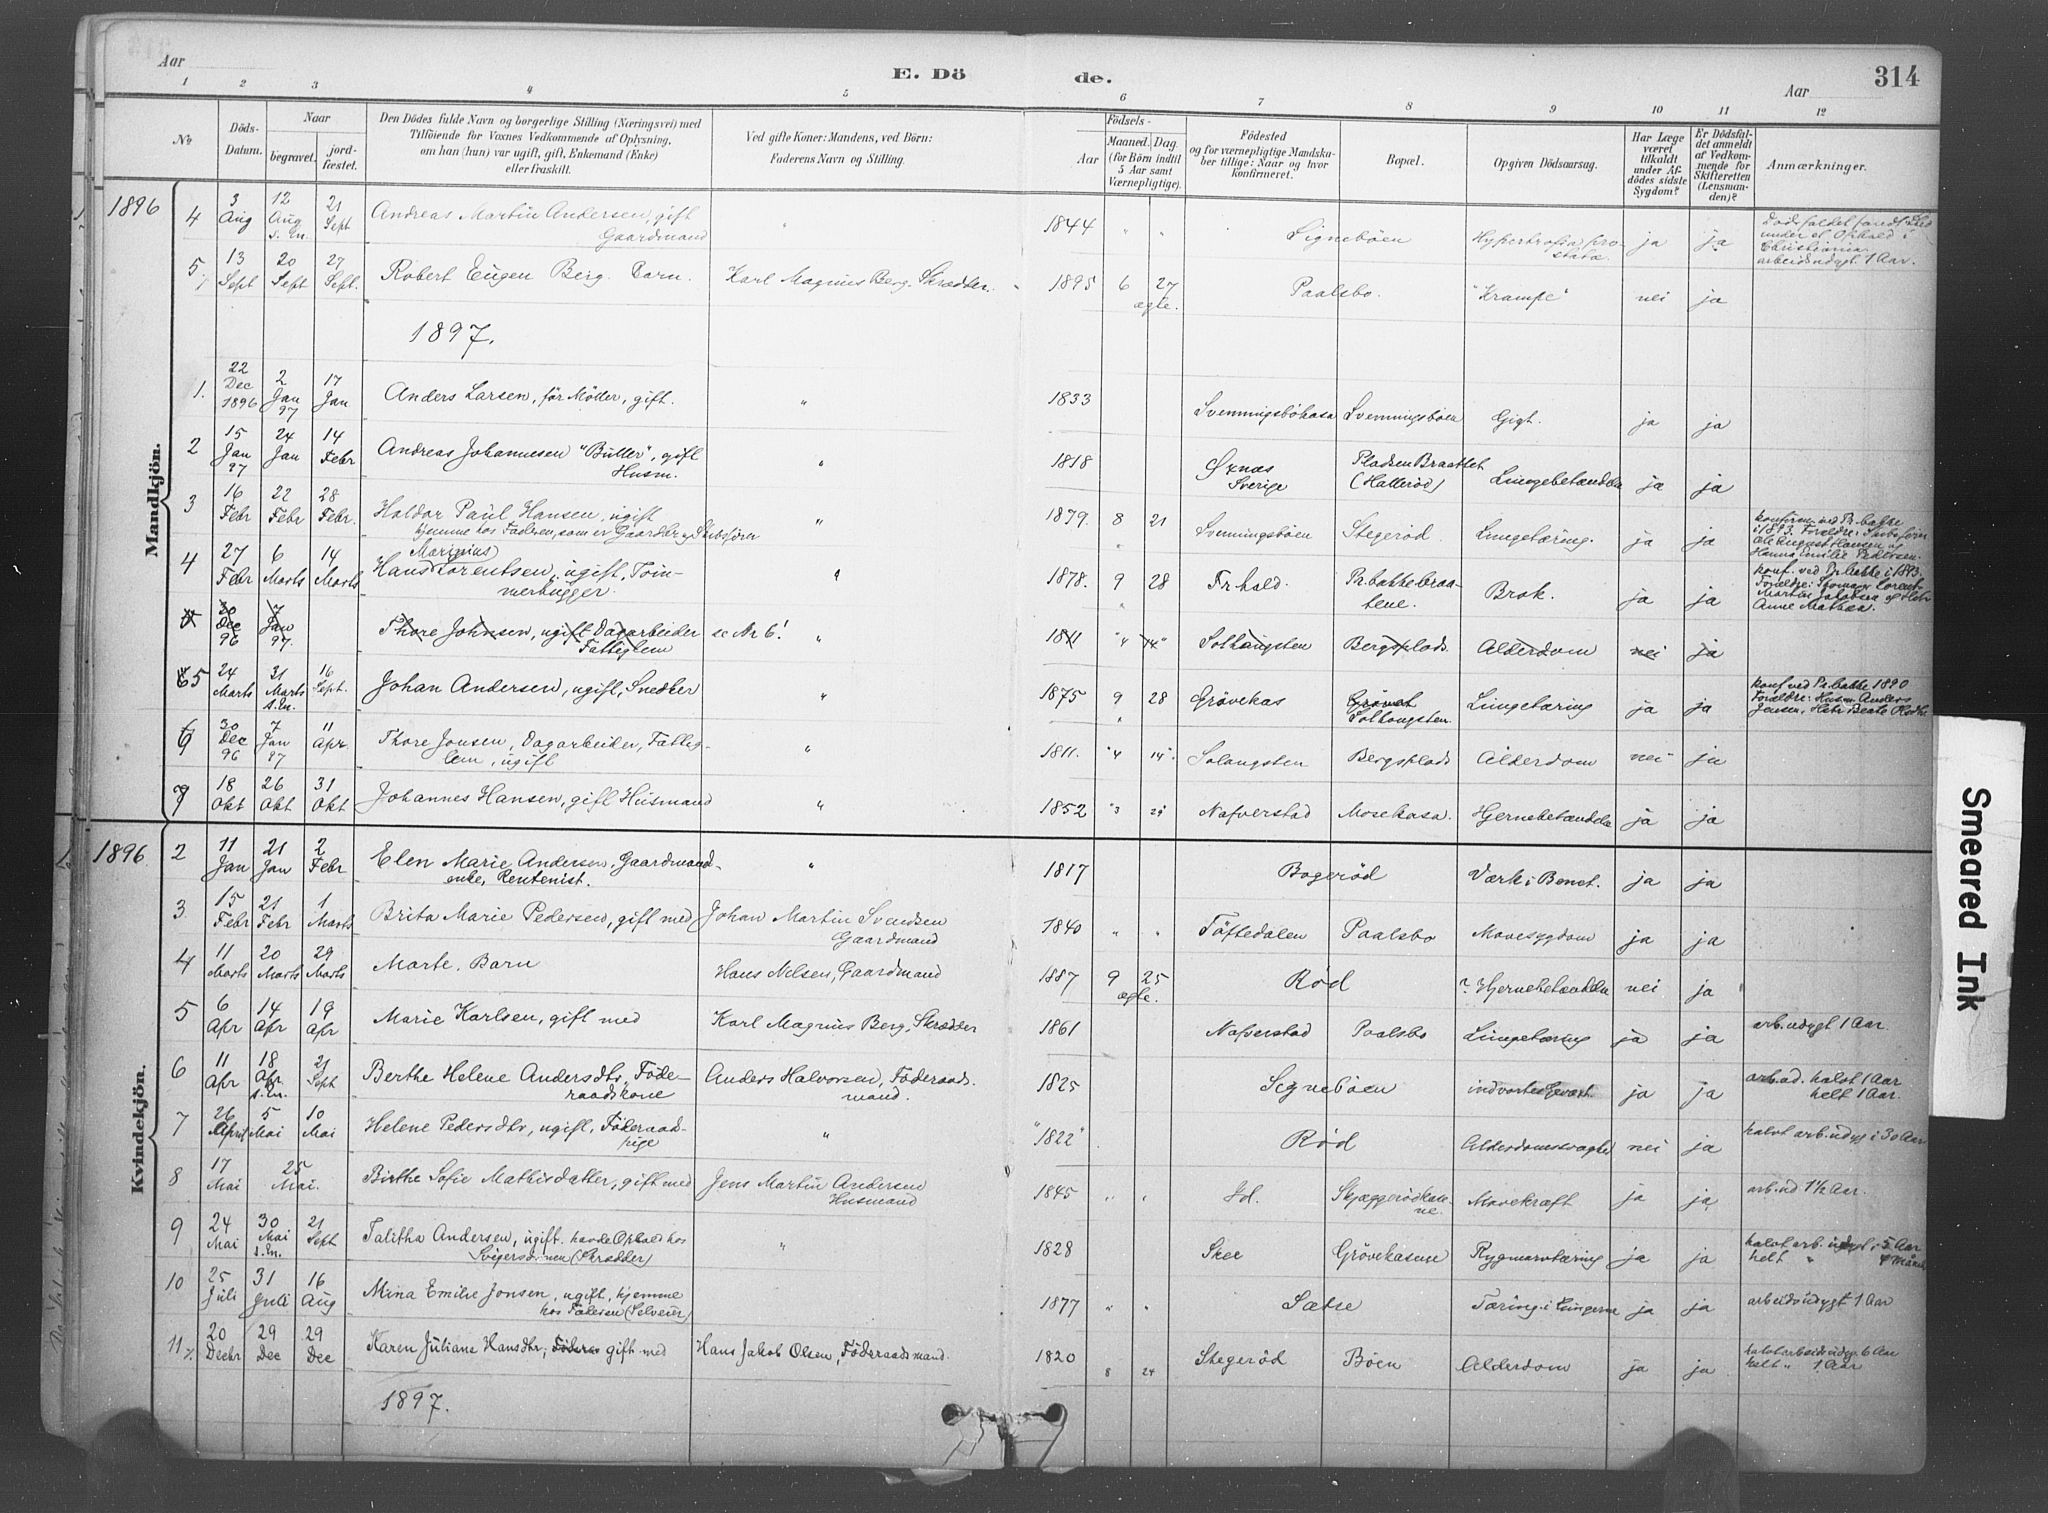 Aar
E. Dö de.
Aar
314
1 2 3 4 5 6 7 8 9 10 11 12
No
Döds-
Datum.
Naar
begravet.
jord-
fæstet.
Den Dödes fulde Navn og borgerlige Stilling (Næringsvei) med
Tilföiende for Voxnes Vedkommende af Oplysning,
om han (hun) var ugift, gift, Enkemand (Enke)
eller fraskilt.
Ved gifte Koner: Mandens, ved Börn:
Faderens Navn og Stilling.
Födsels-
Aar
Maaned. Dag.
(for Börn indtil
5 Aar samt
Værnepligtige).
Födested
og for værnepligtige Mandska-
ber tillige: Naar og hvor
konfirmeret.
Bopæl.
Opgiven Dödsaarsag.
Har Læge
været
tilkaldt
under Af-
dödes sidste
Sygdom?
Er Dödsfal-
det anmeldt
af Vedkom-
mende for
Skifteretten
(Lensman-
den)?
Anmærkninger.
Mandkjön.
1896
4 3 Aug 12 Aug s. En. 21 Sept Andreas Martin Andersen, gift Gaardmand " 1844 " " Signeböen Hypertrofia pro-statæ ja ja under et Ophold i Christiania arbeidsudygt. 1 Aar.
5 13 Sept 20 Sept 27 Sept. Robert Eugen Berg. Barn. Karl Magnus Berg. Skrædder. 1895 6 27 ægte. Paalsbo. "Krampe" nei ja
1897.
1. 22 Dec 1896 2 Jan 97 17 Jan Anders Larsen, för Möller, gift. " 1833 Svenningsbökasa Svenningsböen Gigt. ja ja
2 15 Jan 97 24 Jan 14 Febr Andreas Johannesen "Butler", gift Husm. " 1818 Sverige Pladsen Braattet (Hallerød) Lungebetændelse ja ja
3 16 Febr 22 Febr 28 Febr. Haldor Paul Hansen, ugift hjemme hos Faderen, som er Gaardbr. og Skibsfører " 1879. 8 21 Svenningsböen Stegerød. Lungetæring. ja ja konfirm. ved Pr.bakke i 1893. Forældre: Skibsfører Ole August Hansen og Hanna Emilie Pedersen.
4 27 Febr 6 Marts 14 Marts Hans Marinius Lorentsen, ugift, Töm-merbugger. " 1878. 9 28 Fr.hald. Pr.bakkebraa-tene. Brok. ja ja konf. ved Pr.bakke i 1893. Forældre: Lorents Martin Jakobsen og Anne
5 30 Dec 96 7 Jan 97. Thore Johnsen, ugift Dagarbeider Fattiglem se Nr 6! " 1811 "4 14" Solhaugsten Bergsplads. Alderdom nei ja
5 24 Marts 31 Marts s.En. 16 Sept. Johan Andersen, ugift, Snedker " 1875 9 28 Grövekas Solhaugsten. Lungetæring ja ja konf. ved Pr.bakke 1890 Forældre: Husm. Anders Jensen, Beate
6 30 Dec 96 7 Jan 97 11 Apr. Thore Jonsen, Dagarbeider, Fattig-lem, ugift " 1811. "4 14" Solaugsten Bergsplads Alderdom nei ja
7 18 Okt 26 Okt 31 Okt Johannes Hansen, gift Husmand " 1852 "3 29" Nafverstad Mosekasa. Hjernebetændelse ja ja
Kvindekjön.
1896
2 11 Jan 21 Jan 2 Febr Elen Marie Andersen, Gaardmand-enke, Rentenist. " 1817 Bogeröd Værk i Benet. ja ja
3 15 Febr 21 Febr 1 Marts Brita Marie Pedersen, gift med Johan Martin Svendsen Gaardmand 1840 " " Töftedalen Paalsbo Mavesygdom ja ja
4 11 Marts 20 Marts 29 Marts Marte. Barn Hans Nelsen, Gaardmand 1887 9 25 ægte. Rød ? Hjernebetændelse nei ja
5 6 Apr 14 Apr 19 Apr Marie Karlsen, gift med Karl Magnus Berg, Skrædder 1861 Nafverstad Paalsbo Lungetæring ja ja arb.udygt 1 Aar.
6 11 Apr 18 Apr s.En. 21 Sept Berthe Helene Andersdtr, Föde-raadskone Anders Halvorsen, Föderaads-mand. 1825 Segneböen indvortes ja ja arb.ud. halvt 1 Aar helt 1 Aar.
7 26 April 5 Mai 10 Mai Helene Pedersdtr, ugift, Föderaads-pige " "1822" Rød Alderdomssvaghed nei ja halvt arb.udyg. i 30 Aar
8 17 Mai 25 Mai. Birthe Sofie Mathisdatter, gift med Jens Martin Andersen Husmand 1845 " " Id. Skjæggerödkase-ne Mavekræft ja ja arb.ud 1½ Aar.
9 24 Mai 30 Mai s.En. 21 Sept Talitha Andersen, ugift. havde Ophold hos (Skrædder) " 1828 Skee Grövekasene Rygmarvtæring ja ja halvt arb. udygt i 5 Aar helt "
10 25 Juli 31 Juli 16 Aug Mina Emilie Jonsen, ugift, hjemme hos Faderen (Selveier) 1877 " " Sætre Tæring i Lungerne ja ja arbeidsudygt 1 Aar
11 20 Decbr 29 Dec 29 Dec Karen Juliane Hansdtr, gift med Hans Jakob Olsen, Föderaadsmand. 1820 8 24 Stegeröd Böen Alderdom ja ja halvt arbeidsudyg. 6 Aar helt " 1 Aar
1897.
Smeared Ink